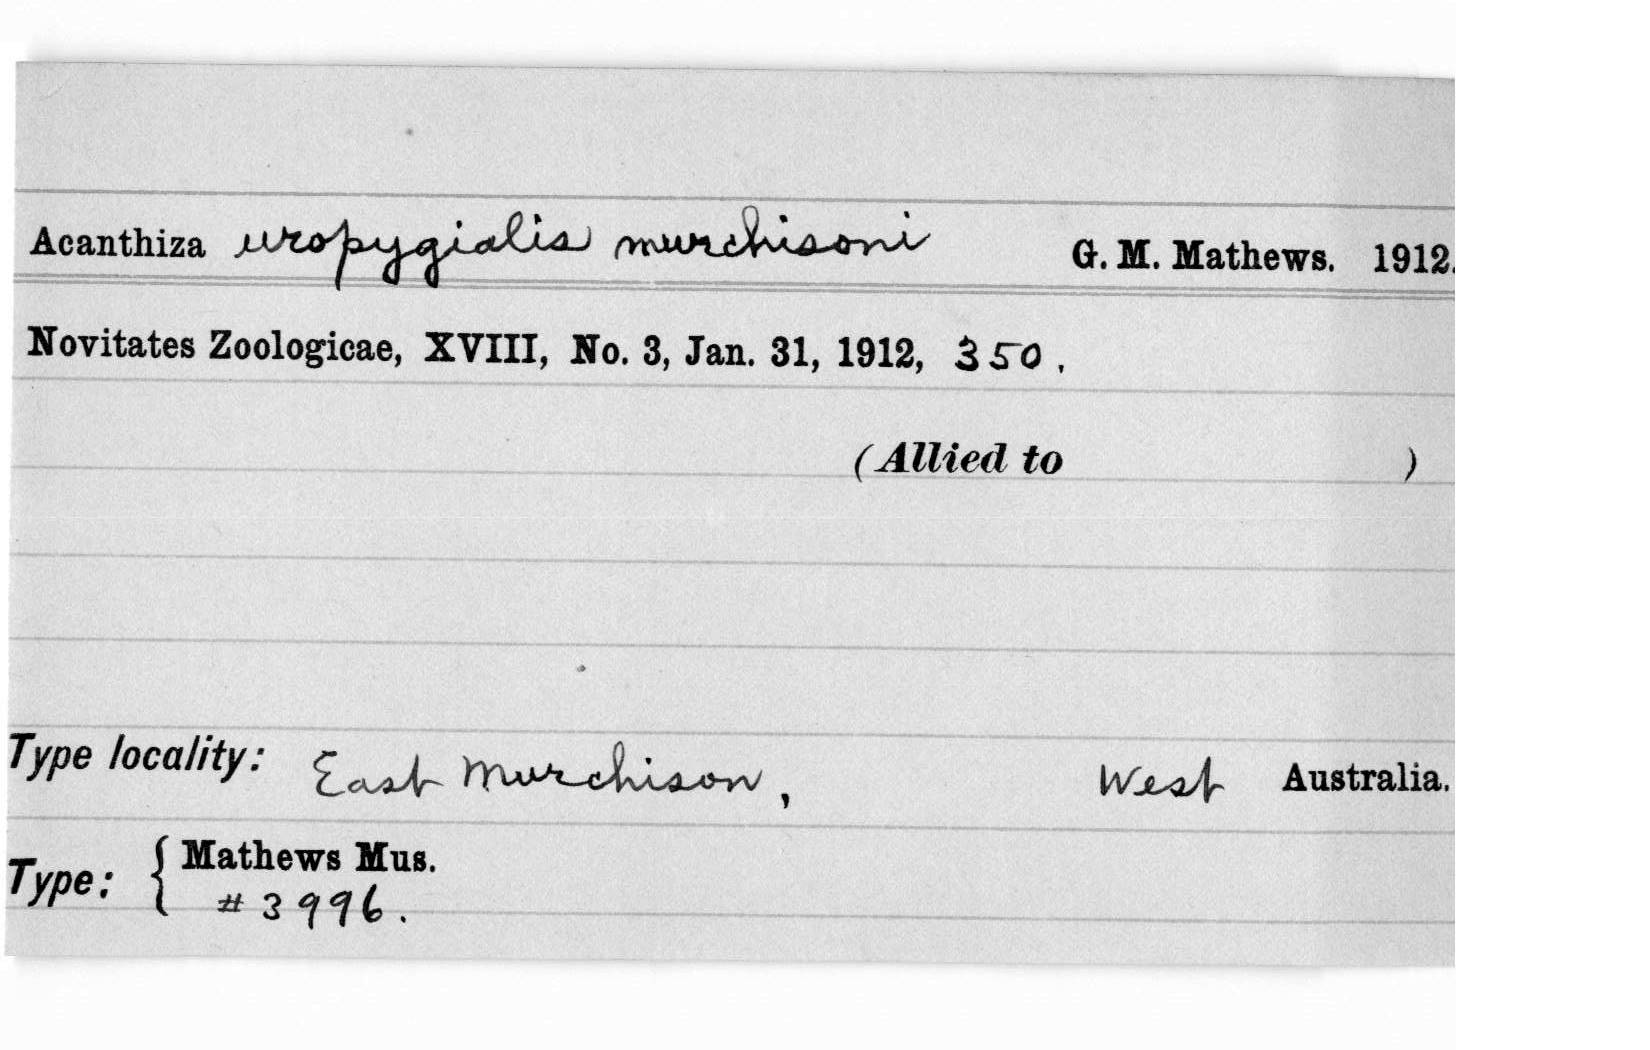 Acanthiza uropygialis murchisoni G. M. Mathews. 1912.
Novitates Zoologicae, XVIII, No. 3, Jan. 31, 1912, 350.
(Allied to )
Type locality: East Murchison, West Australia.
Type: { Mathews Mus.
# 3996.